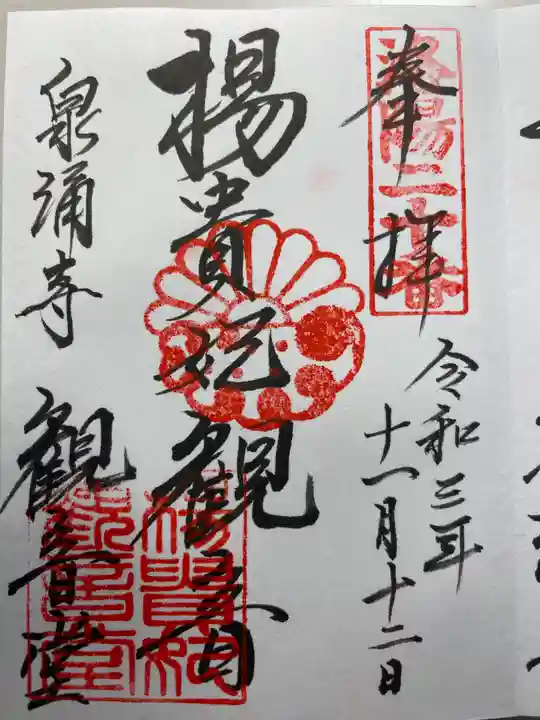 奉拝
洛陽二十番
令和三年
十一月十二日
楊貴妃観音
泉涌寺 観音堂
楊貴妃
観音堂